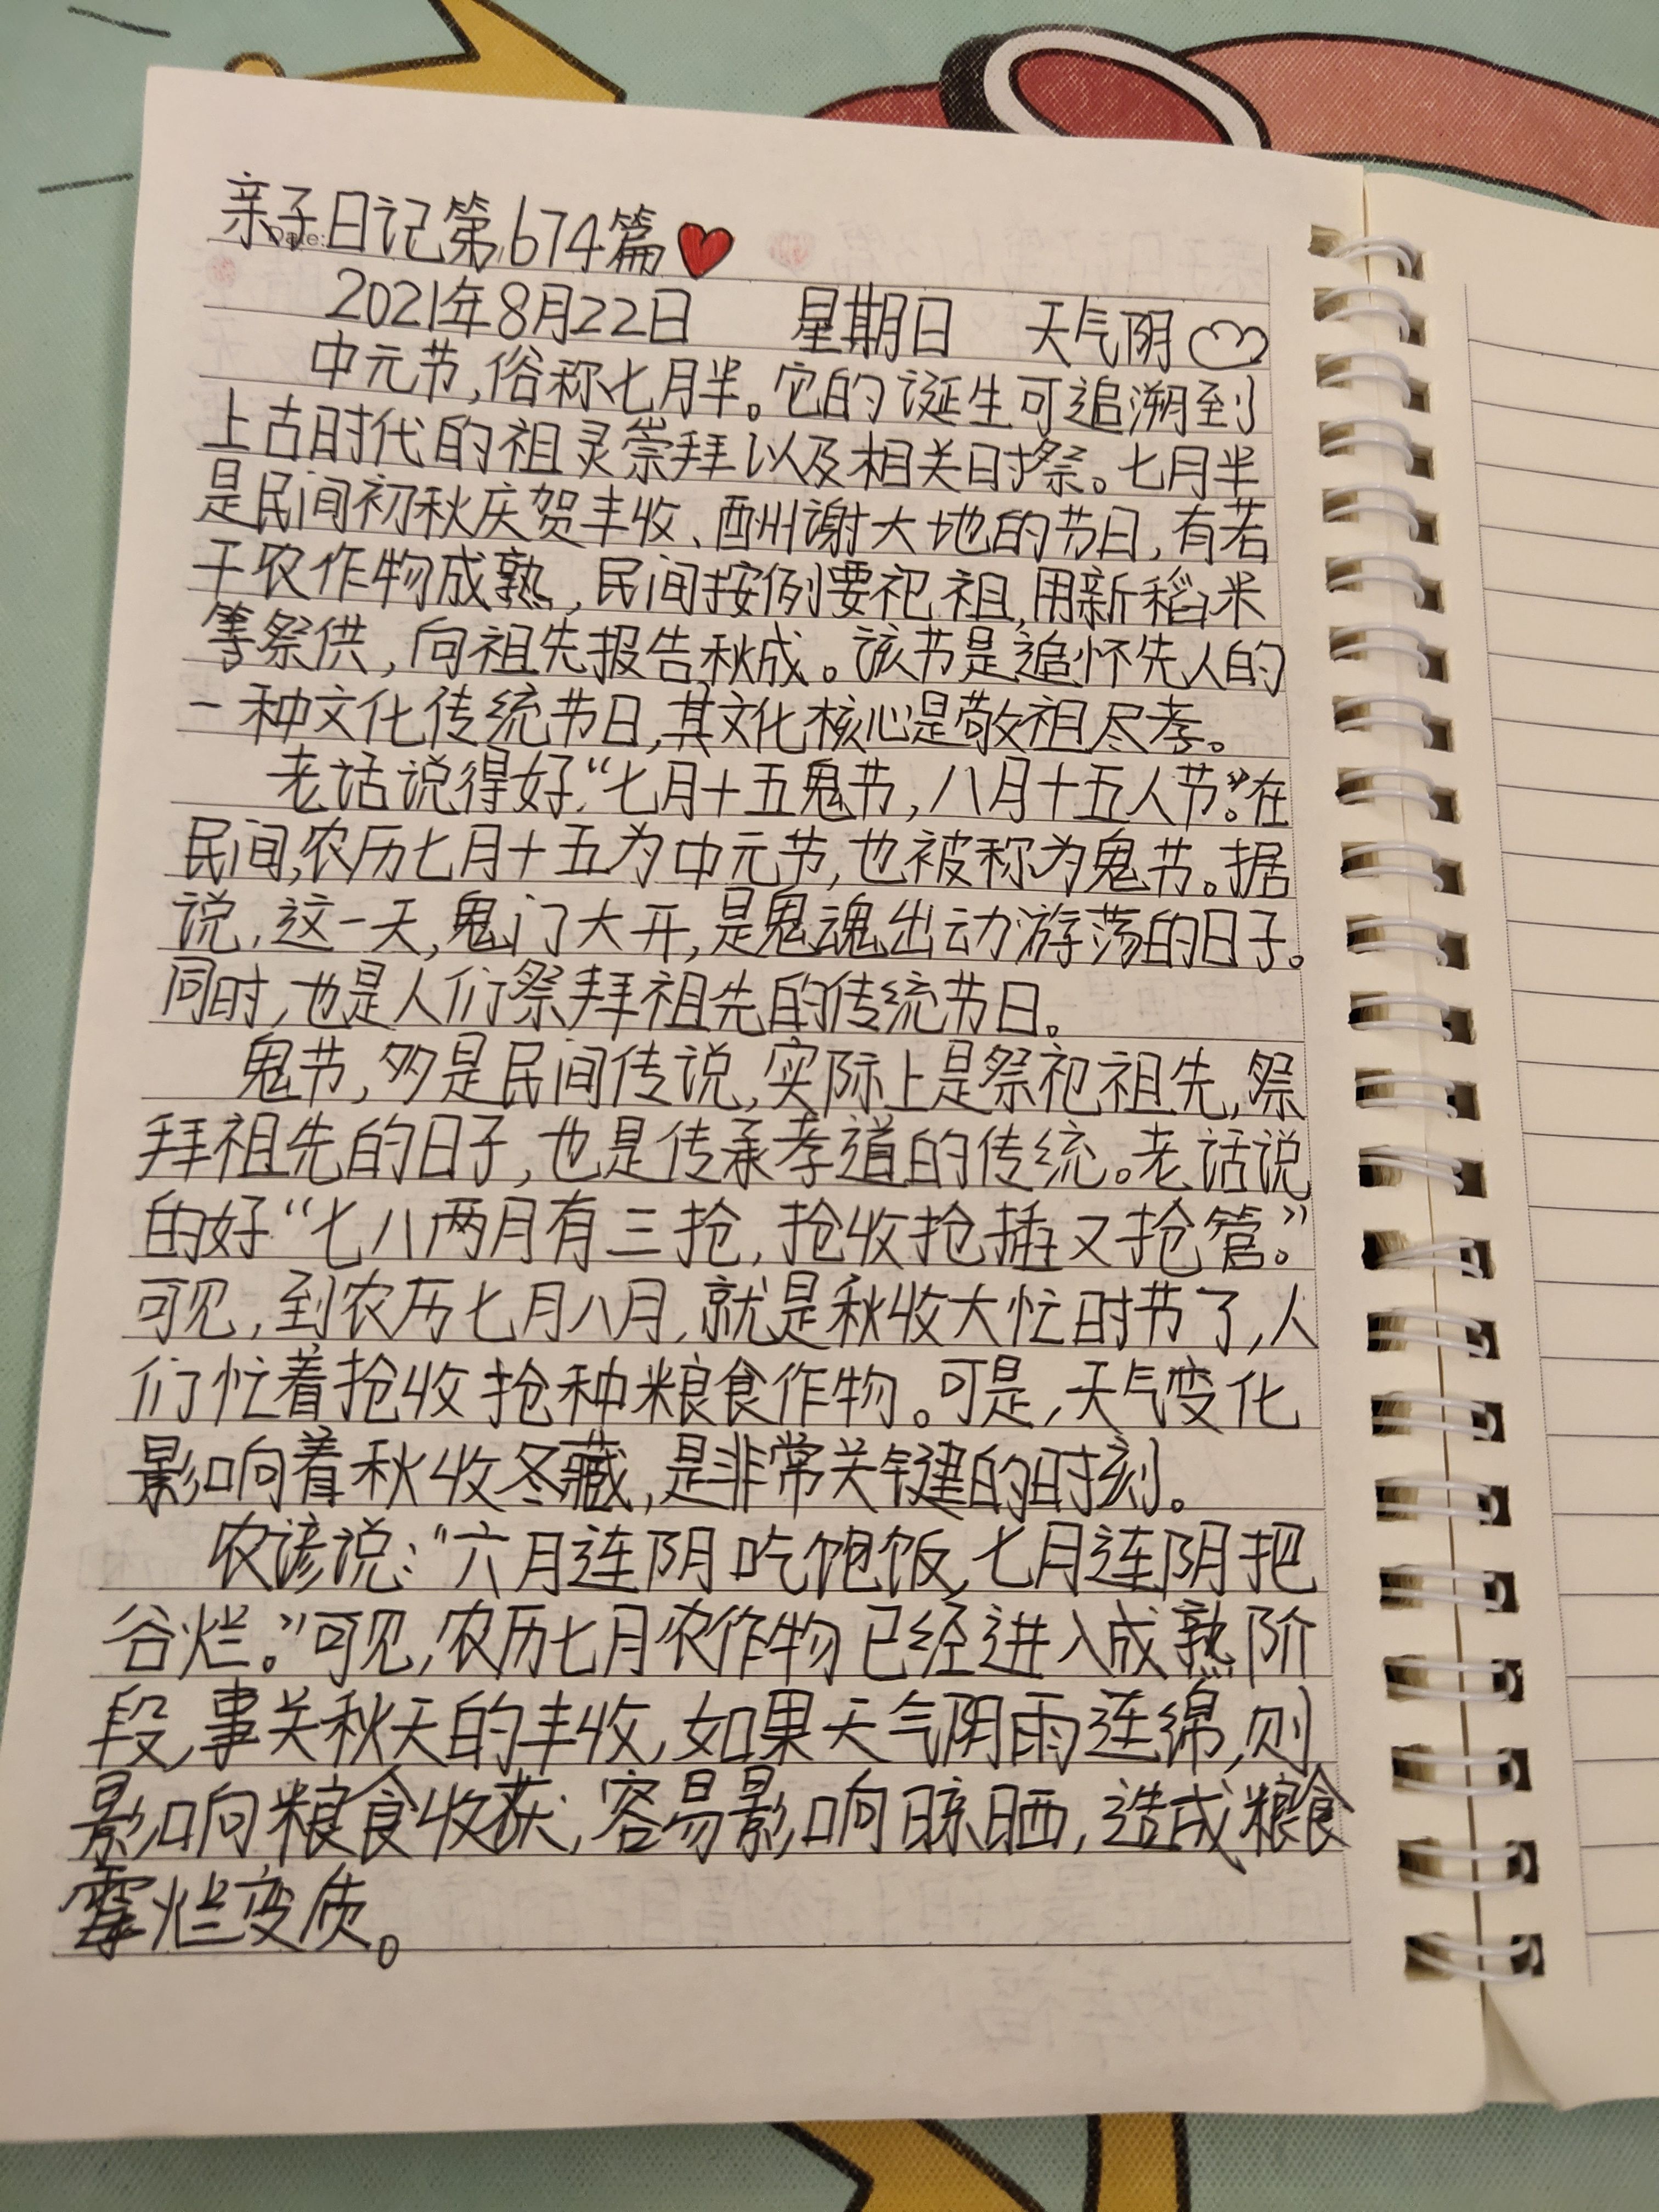 亲子日记第674篇
Date:
2021年8月22日 星期日 天气阴
中元节,俗称七月半。它的诞生可追溯到
上古时代的祖灵崇拜以及相关时祭。七月半
是民间初秋庆贺丰收、酬谢大地的节日,有若
干农作物成熟,民间按例要祀祖,用新稻米
等祭供,向祖先报告秋成。该节是追怀先人的
一种文化传统节日,其文化核心是敬祖尽孝。
老话说得好:“七月十五鬼节,八月十五人节。”在
民间,农历七月十五为中元节,也被称为鬼节。据
说,这一天,鬼门大开,是鬼魂出动游荡的日子。
同时,也是人们祭拜祖先的传统节日。
鬼节,多是民间传说,实际上是祭祀祖先,祭
拜祖先的日子,也是传承孝道的传统。老话说
的好“七八两月有三抢,抢收抢插又抢管。”
可见,到农历七月八月,就是秋收大忙时节了,人
们忙着抢收抢种粮食作物。可是,天气变化
影响着秋收冬藏,是非常关键的时刻。
农谚说:“六月连阴吃饱饭,七月连阴把
谷烂。”可见,农历七月农作物已经进入成熟阶
段,事关秋天的丰收,如果天气阴雨连绵,则
影响粮食收获,容易影响晾晒,造成粮食
霉烂变质。